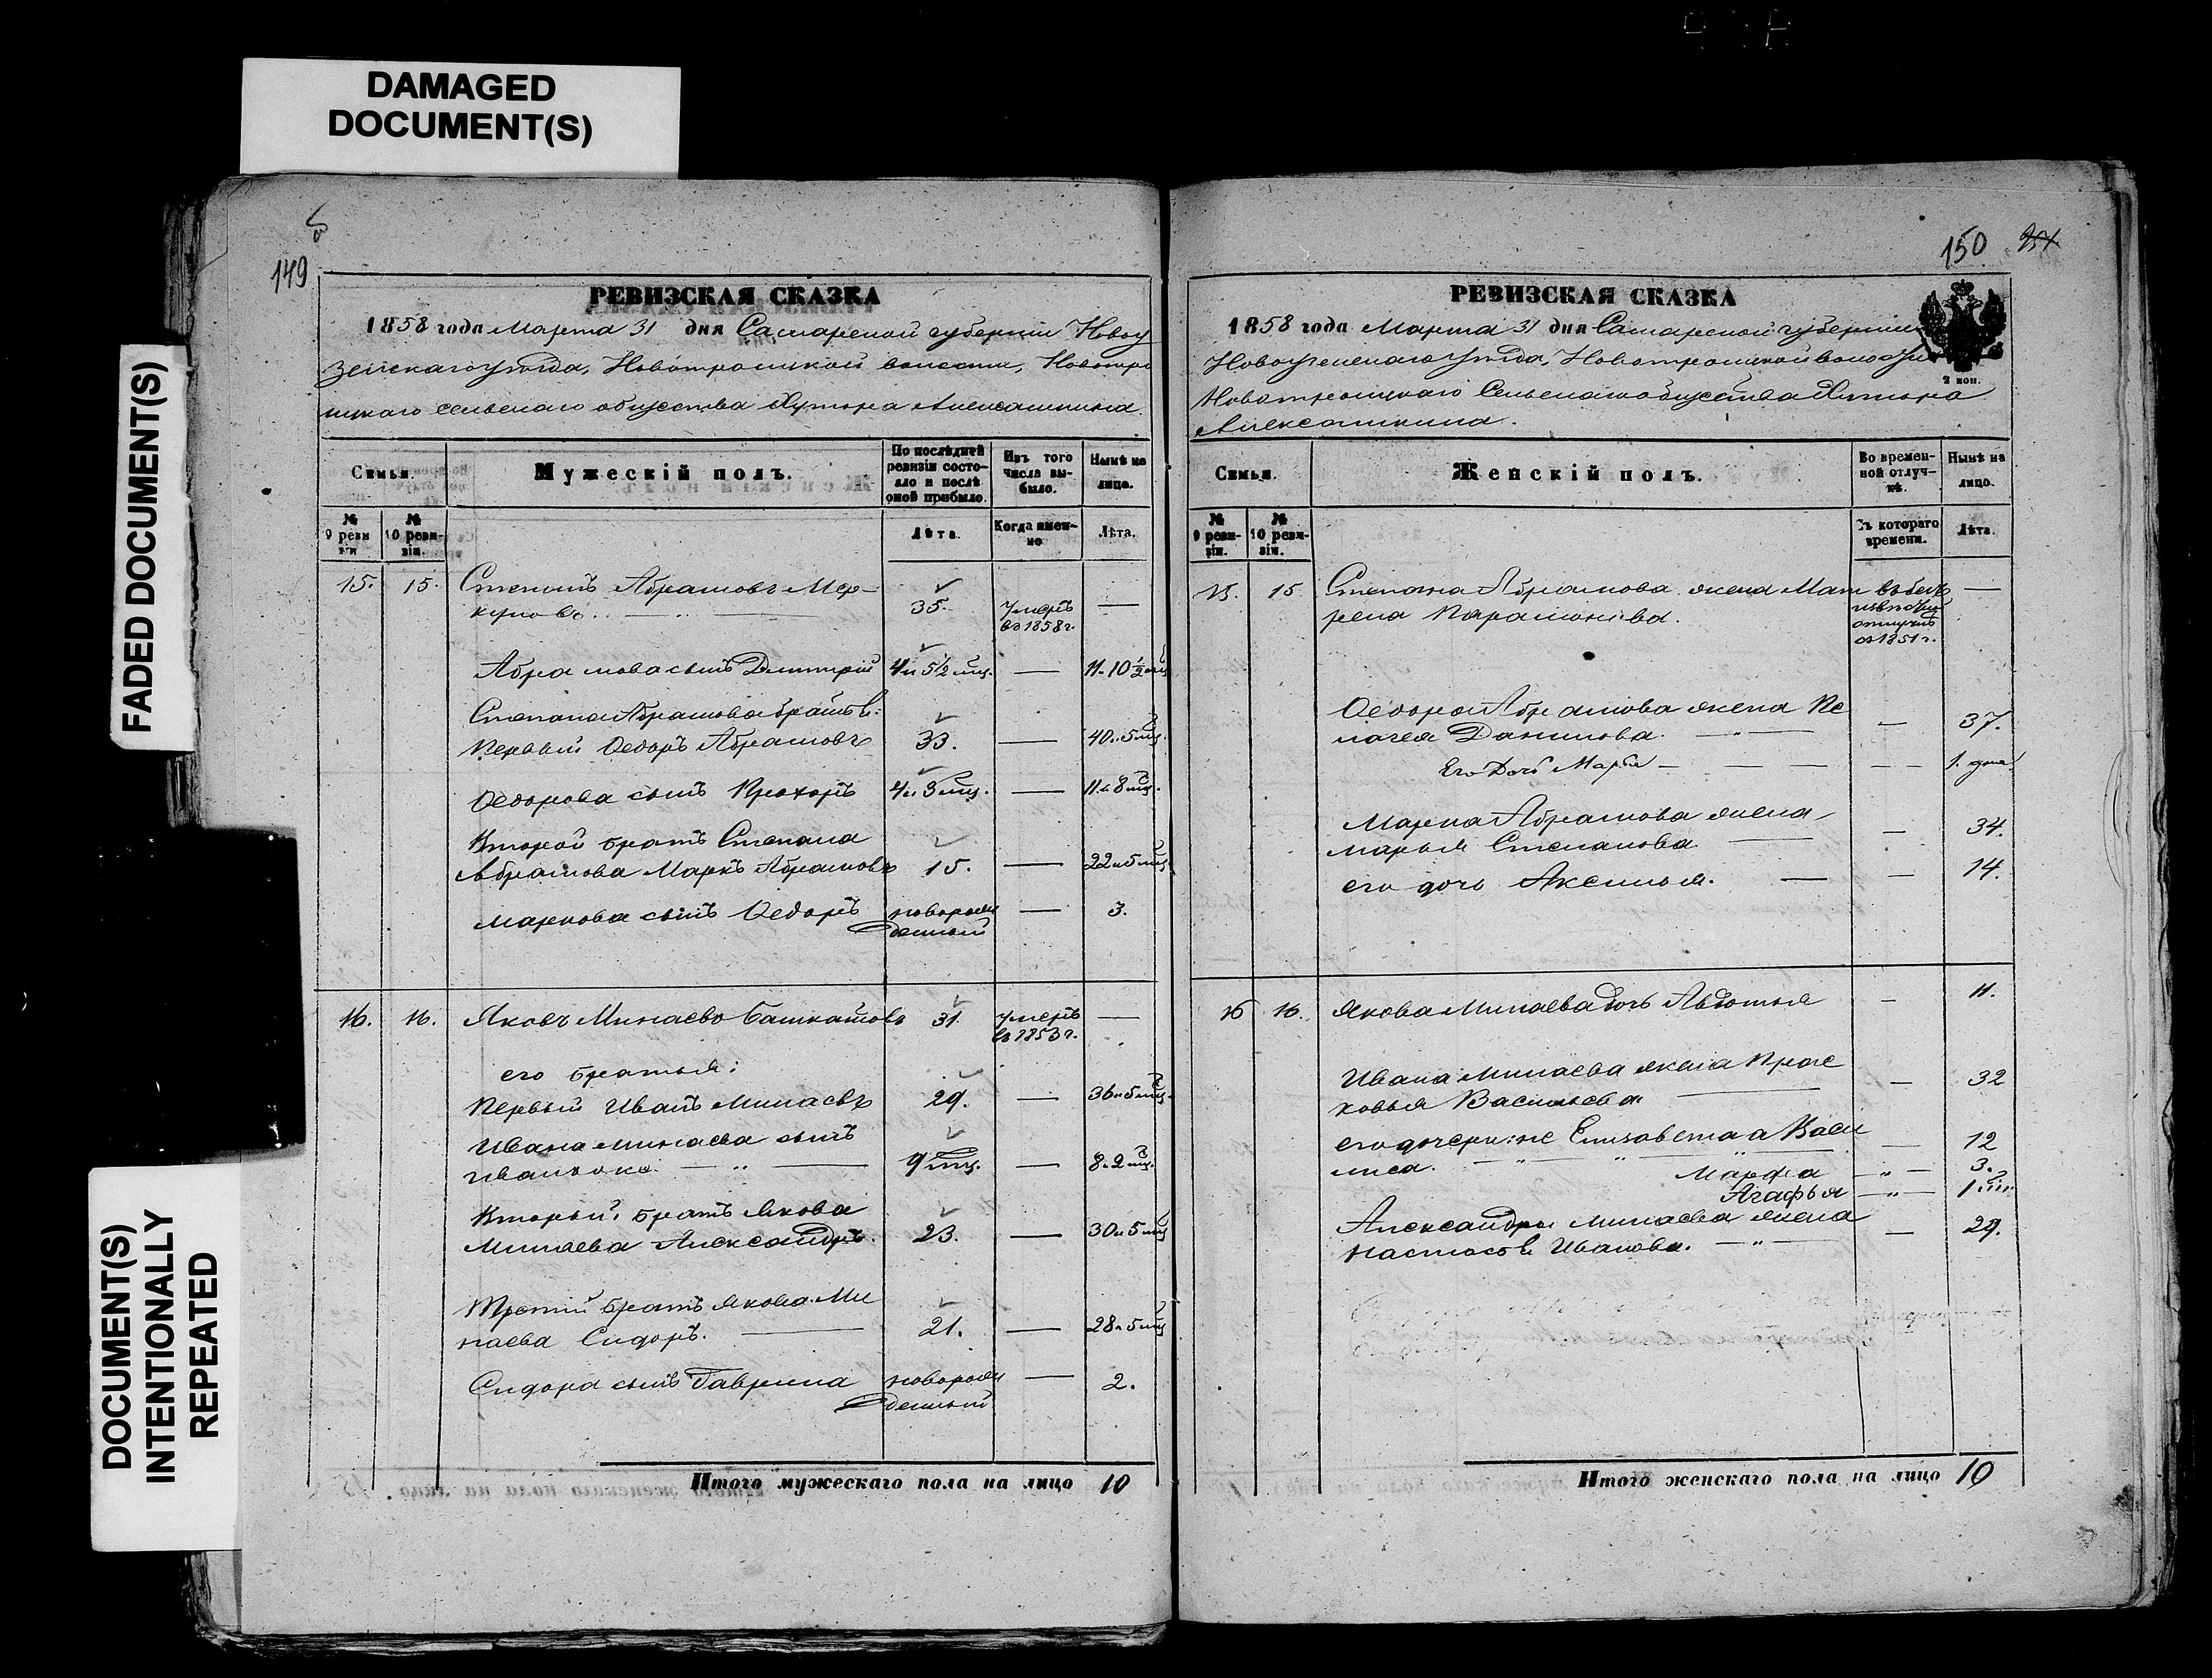 DAMAGED
DOCUMENT(S)
FADED DOCUMENT(S)
DOCUMENT(S)
INTENTIONALLY
REPEATED
149
РЕВИЗСКАЯ СКАЗКА
1858 года Марта 31 дня Самарской губернии Новоу
зенскаго уѣзда, Новотроицкой волости, Новотро
ицкаго сельскаго общества Хутора Алексашкина
Семьи.
Мужескій полъ.
По послѣдней ревизіи состояло и послѣ оной прибыло.
Изъ того числа выбыло.
Нынѣ на лицо.
№ 9 ревизіи
№ 10 ревизіи.
Лѣта.
Когда именно
Лѣта.
15. 15. Степанъ Абрамовъ Мер-
куловъ. 35. умеръ —
въ 1858 г.
Абрамова сынъ Дмитрій 4 и 5½ мц. — 11. 10½ мц
Степана Абрамова братья:
Первый Ѳедоръ Абрамовъ 33. — 40 и 5 мц.
Ѳедорова сынъ Прохоръ 4 и 3 мц. — 11 и 8 мц.
Второй братъ Степана
Абрамова Маркъ Абрамовъ 15. — 22 и 5 мц
Маркова сынъ Ѳедоръ новорож — 3.
денный
16. 16. Яковъ Минаевъ Башкатовъ 31. умеръ —
въ 1853 г.
его братья:
Первый Иванъ Минаевъ 29. — 36 и 5 мц.
Ивана Минаева сынъ
9 мц. — 8 и 2 мц.
Вторый братъ Якова
Минаева Александръ. 23. — 30 и 5 мц
Третий братъ Якова Ми
наева Сидоръ. 21. — 28 и 5 мц
Сидора сынъ Гаврила новорож — 2.
денный
Итого мужескаго пола на лицо 10
150
РЕВИЗСКАЯ СКАЗКА
1858 года Марта 31 дня Самарской губернии
Новоузенскаго уѣзда, Новотроицкой волости
Новотроицкаго Сельскаго общества Хутора
Алексашкина.
2 коп.
Семьи.
Женскій полъ.
Во временной отлучкѣ.
Нынѣ на лицо.
№ 9 ревизіи.
№ 10 ревизіи.
Съ котораго времени.
Лѣта.
15. 15 Степана Абрамова жена Мат —
рена Парамонова.
съ 1851 г.
Ѳедора Абрамова жена Пе
лагея Данилова. — 37.
Его дочь Марья — — — 1. дня
Марка Абрамова жена
Марья Степанова — 34.
его дочь Аксинья. — — 14.
16 16. Якова Минаева дочь Авдотья — 11.
Ивана Минаева жена Прас
ковья Васильева — 32
его дочери: Елизавета а Васи
лиса. — 12
Марфа — „ — 3.
Агафья — „ — 1
Александра Минаева жена
Настасья Иванова. — „ — — 29.
Итого женскаго пола на лицо 10